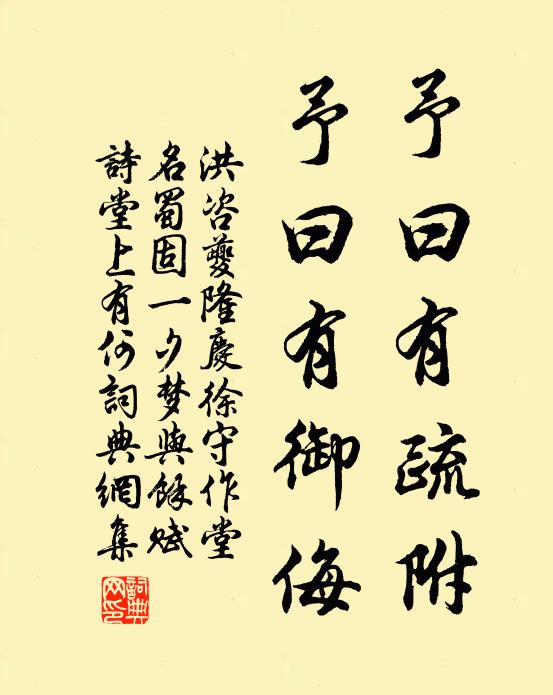 予曰有疏附
予曰有御侮
洪咨夔隆慶徐守作堂
名蜀固一夕梦與餘赋
詩堂上有何詞典網集
詞典網印